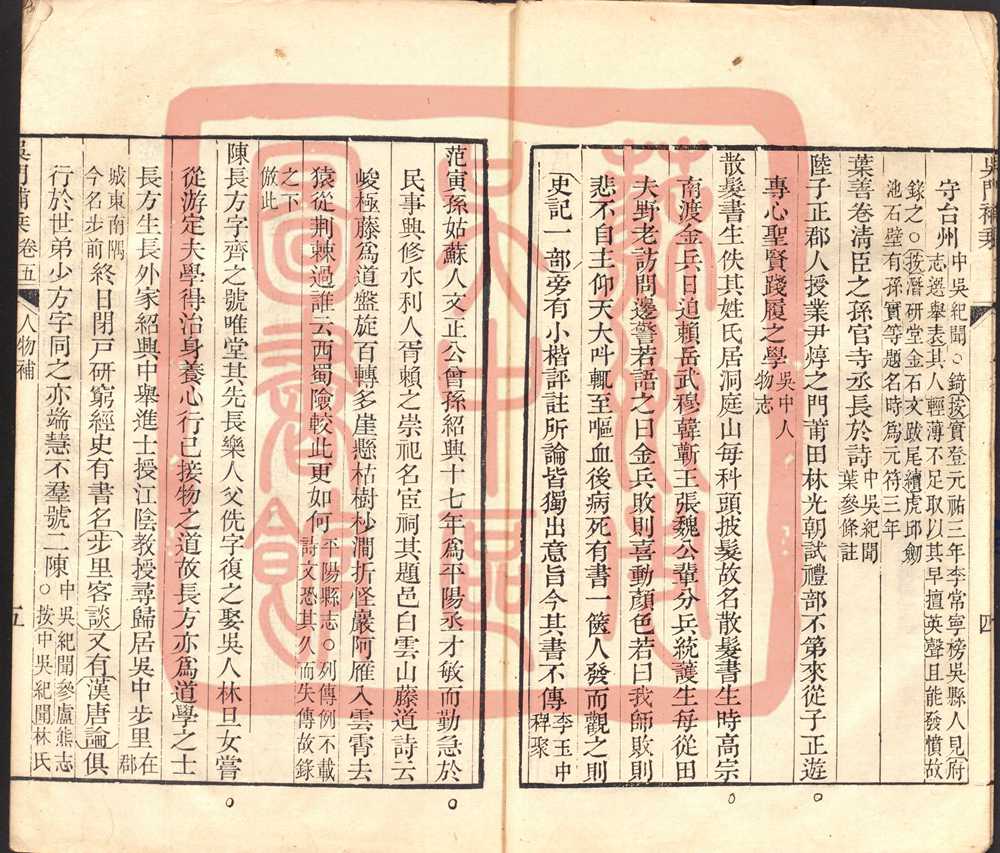 吳門補乘
四
守台州中吳紀聞○錡按實登元祐三年李常寧榜吳縣人見府
志選舉表其人輕薄不足取以其早擅英聲且能發憤故
錄之○按潛研堂金石文跋尾續虎邱劍
池石壁有孫實等題名時爲元符三年
葉善卷淸臣之孫官寺丞長於詩中吳紀聞
葉參條註
陸子正郡人授業尹焞之門莆田林光朝試禮部不第來從子正遊
專心聖賢踐履之學吳中人
物志
散髮書生佚其姓氏居洞庭山每科頭披髮故名散髮書生時高宗
南渡金兵日迫賴岳武穆韓蘄王張魏公輩分兵統護生每從田
夫野老訪問邊警若語之曰金兵敗則喜動顏色若曰我師敗則
悲不自主仰天大呌輒至嘔血後病死有書一篋人發而觀之則
史記一部旁有小楷評註所論皆獨出意旨今其書不傳李玉中
稗聚
范寅孫姑蘇人文正公曾孫紹興十七年爲平陽丞才敏而勤急於
民事興修水利人胥賴之崇祀名宦祠其題邑白雲山藤道詩云
峻極藤爲道盤旋百轉多崖懸枯樹杪澗折怪巖阿雁入雲霄去
猿從荆棘過誰云西蜀險較此更如何平陽縣志○列傳例不載
詩文恐其久而失傳故錄
之下
倣此
陳長方字齊之號唯堂其先長樂人父侁字復之娶吳人林旦女嘗
從游定夫學得治身養心行已接物之道故長方亦爲道學之士
長方生長外家紹興中舉進士授江陰教授尋歸居吳中步里在郡
城東南隅
今名步前終日閉戸研窮經史有書名步里客談又有漢唐論俱
行於世弟少方字同之亦端慧不羣號二陳中吳紀聞參盧熊志
○按中吳紀聞林氏
吳門補乘
卷五
人物補
五